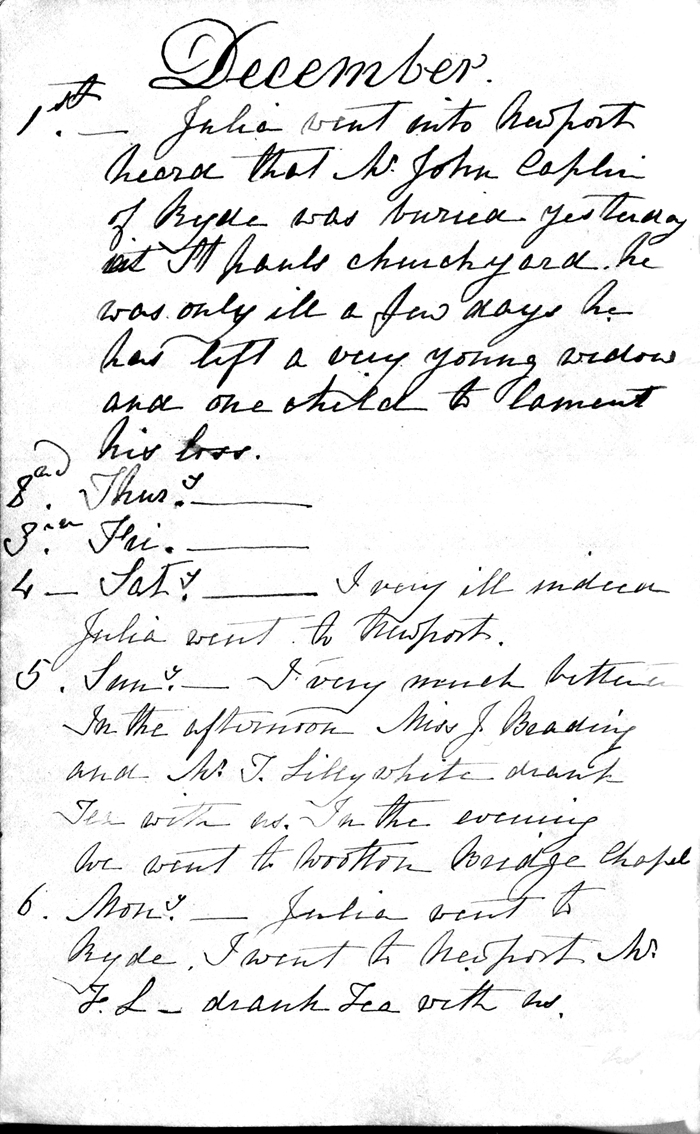 December.
1st. — Julia went into Newport
heard that Mr. John Caplin
of Ryde was buried yesterday
at St pauls churchyard. he
was only ill a few days he
has left a very young widow
and one child to lament
his loss.
2nd. Thursy. ———
3rd. Fri. ———
4 — Saty. ——— I very ill indeed
Julia went to Newport.
5. Suny. — I very much better
In the afternoon Miss J Beading
and Mr. T. Lillywhite drank
Tea with us. In the evening
we went to Wootton Bridge Chapel
6. Mony. — Julia went to
Ryde. I went to Newport Mr.
T. L — drank Tea with us.